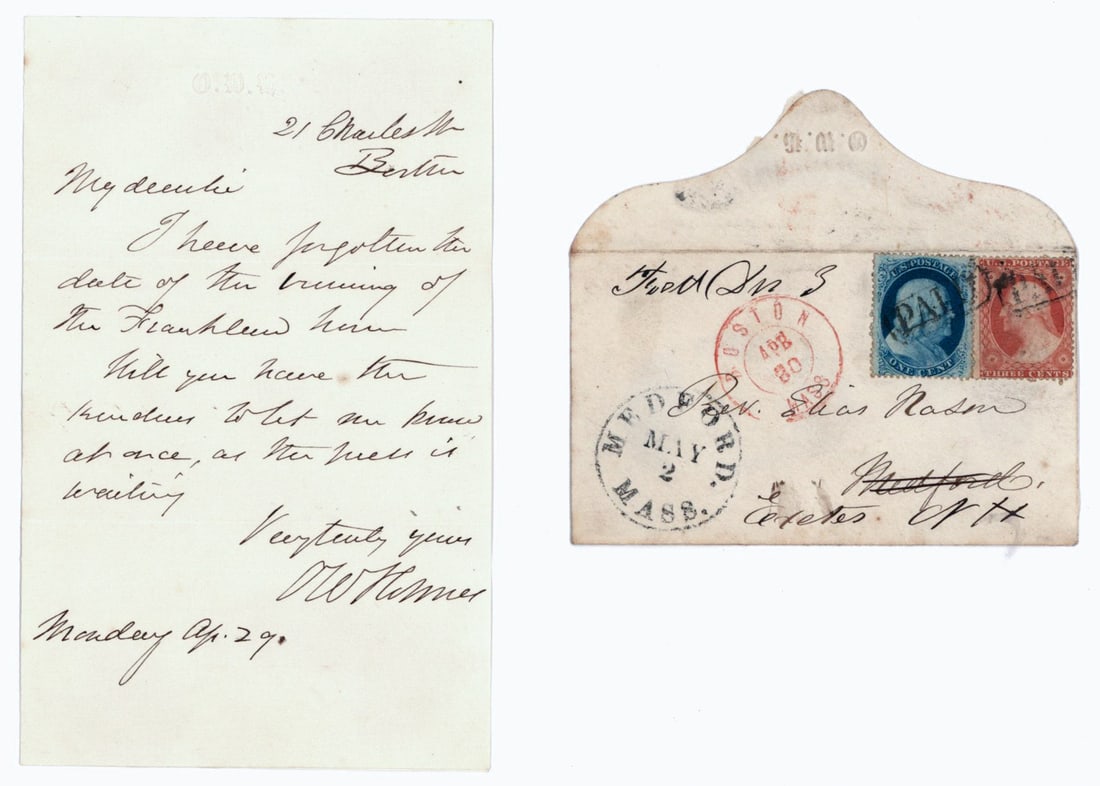 O.W.H.
21 Charles St
Boston
My dear Sir
I have forgotten the
date of the burning of
the Franklin house
Will you have the
kindness to let me know
at once, as the press is
waiting
Very truly yours
O W Holmes
Monday Ap. 29.
O.W.H.
3
U.S. POSTAGE
ONE CENT
U.S. POSTAGE
THREE CENTS
PAID
BOSTON
APR
30
MASS
Rev. Elias Nason
MEDFORD.
MAY
2
MASS.
Medford.
Exeter N H